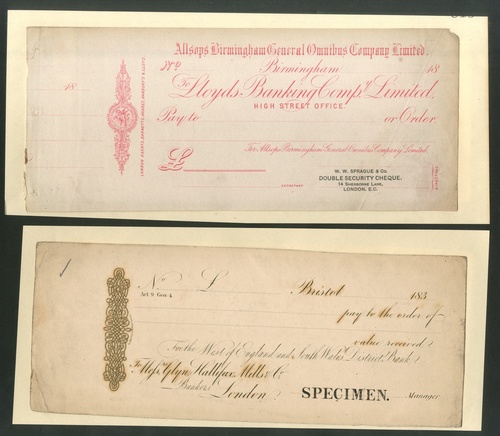 Allsops Birmingham General Omnibus Company Limited.
No
Birmingham 18
18
To Lloyds Banking Compy. Limited.
HIGH STREET OFFICE.
Pay to or Order
For Allsops Birmingham General Omnibus Company Limited.
£
W. W. SPRAGUE & Co.
DOUBLE SECURITY CHEQUE.
14 SHERBORNE LANE,
LONDON, E.C.
No £ Bristol 183
Act 9 Geo: 4
pay to the order of
value received
For the West of England and South Wales District Bank
To Messrs Glyn, Hallifax, Mills & Co.
Bankers London
SPECIMEN. Manager